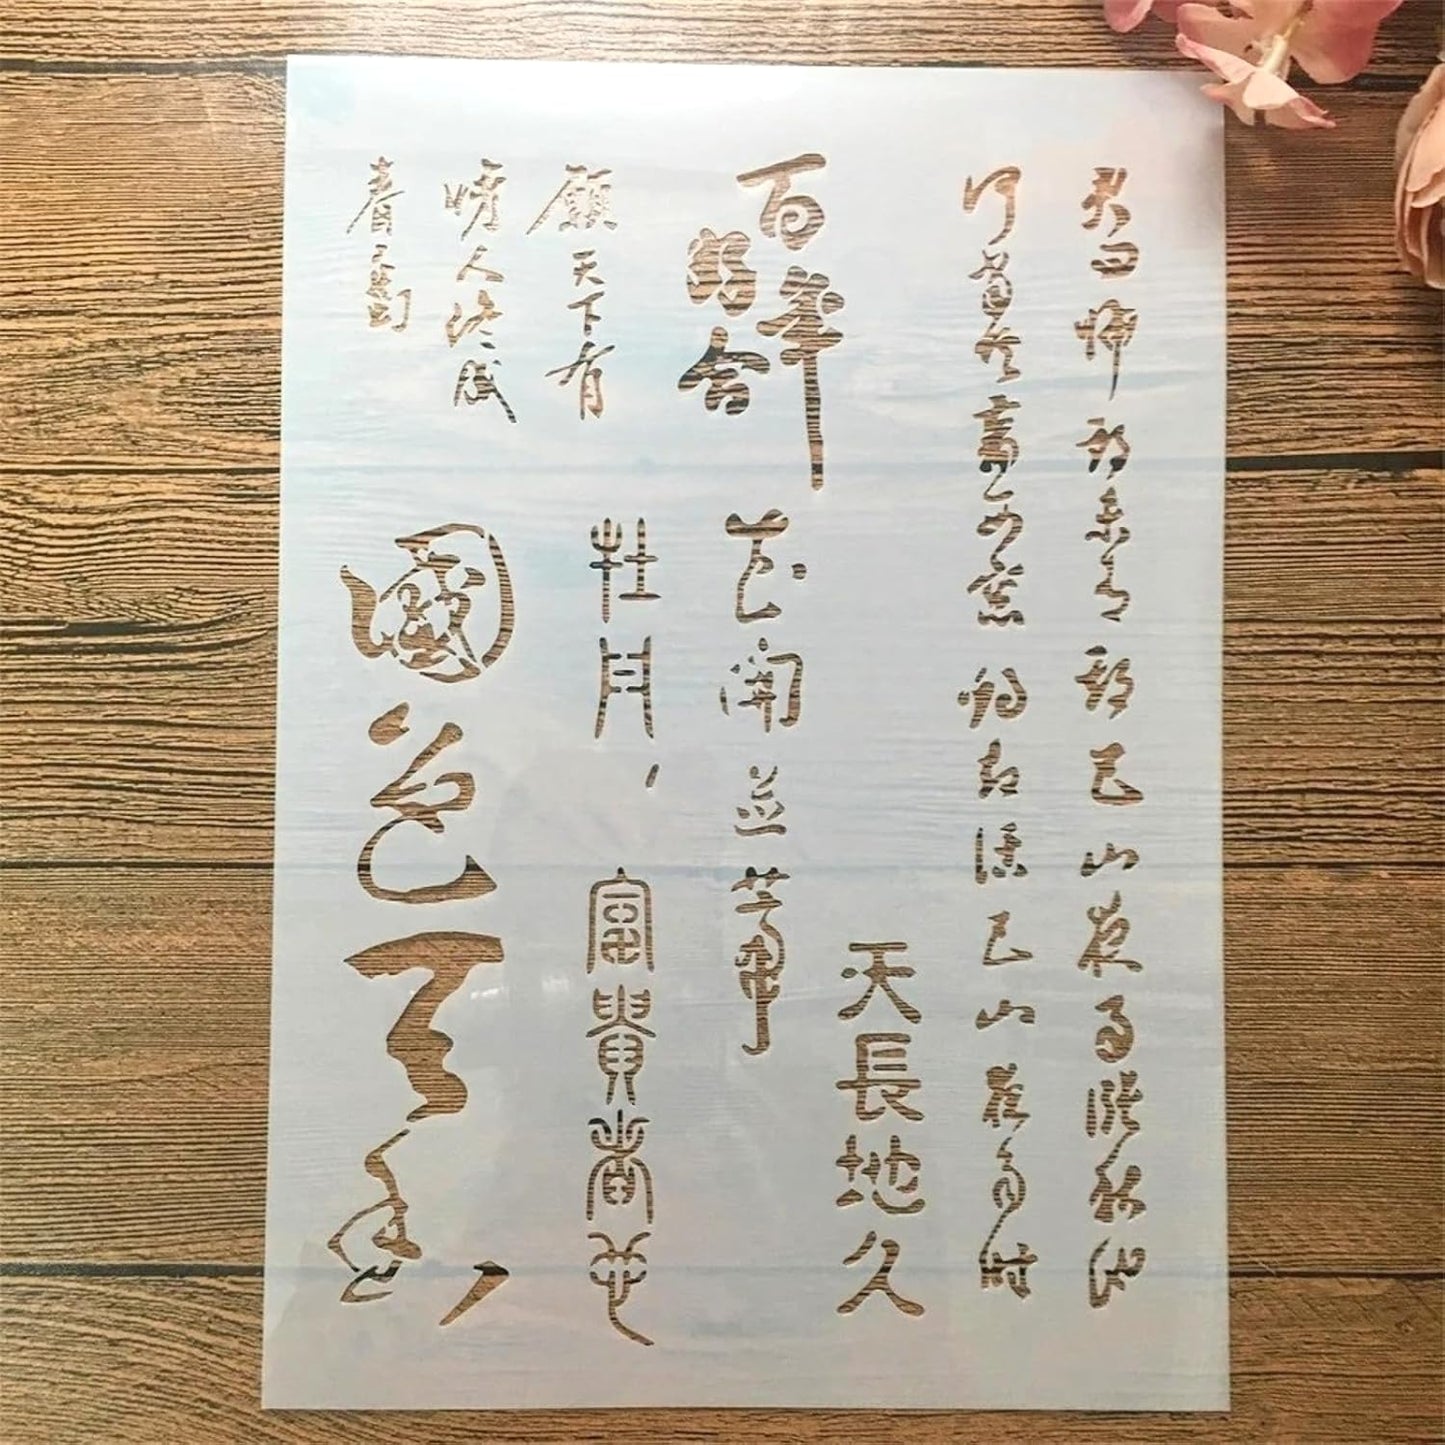 君問歸期未有期巴山夜雨漲秋池
何當共剪西窗燭却話巴山夜雨時
百年
好合
願天下有
情人終成
眷屬
天長地久
花開並蒂
牡丹，富貴者也
國色天香